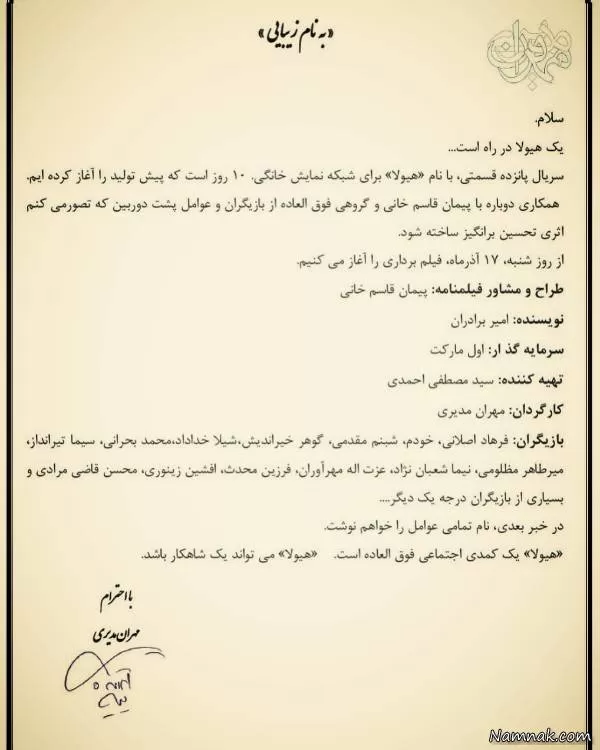 «به نام زیبایی»
سلام.
یک هیولا در راه است...
سریال پانزده قسمتی، با نام «هیولا» برای شبکه نمایش خانگی. ۱۰ روز است که پیش تولید را آغاز کرده ایم.
همکاری دوباره با پیمان قاسم خانی و گروهی فوق العاده از بازیگران و عوامل پشت دوربین که تصورمی کنم
اثری تحسین برانگیز ساخته شود.
از روز شنبه، ۱۷ آذرماه، فیلم برداری را آغاز می کنیم.
طراح و مشاور فیلمنامه: پیمان قاسم خانی
نویسنده: امیر برادران
سرمایه گذ ار: اول مارکت
تهیه کننده: سید مصطفی احمدی
کارگردان: مهران مدیری
بازیگران: فرهاد اصلانی، خودم، شبنم مقدمی، گوهر خیراندیش،شیلا خداداد،محمد بحرانی، سیما تیرانداز،
میرطاهر مظلومی، نیما شعبان نژاد، عزت اله مهرآوران، فرزین محدث، افشین زینوری، محسن قاضی مرادی و
بسیاری از بازیگران درجه یک دیگر....
در خبر بعدی، نام تمامی عوامل را خواهم نوشت.
«هیولا» یک کمدی اجتماعی فوق العاده است. «هیولا» می تواند یک شاهکار باشد.
با احترام
مهران مدیری
Namnak.com